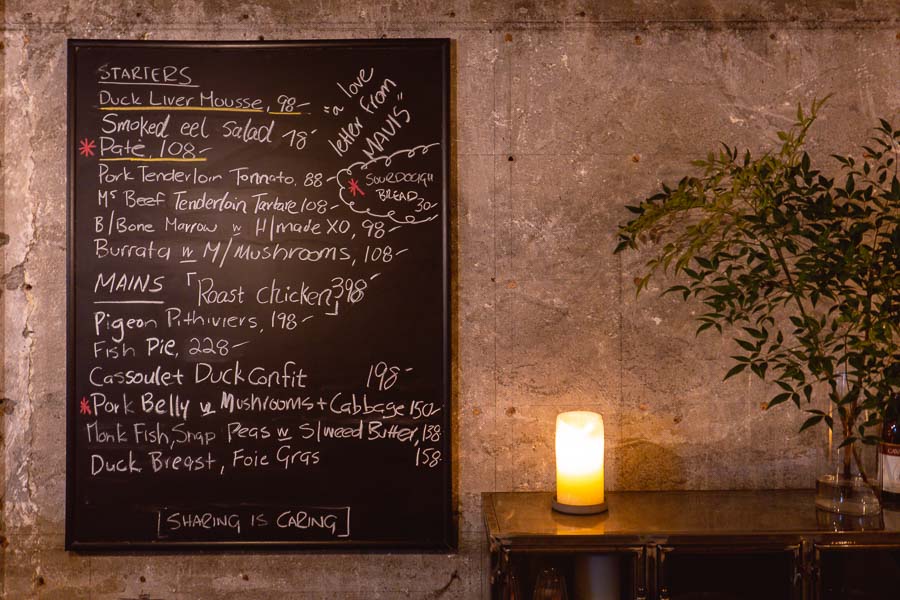 STARTERS
Duck Liver Mousse, 98-
Smoked eel salad 78-
* Paté, 108-
Pork Tenderloin Tonnato, 88-
Ms Beef Tenderloin Tartare 108-
B/Bone Marrow w H/made XO, 98-
Burrata w M/Mushrooms, 108-
"a love
letter from
MAVIS"
* SOURDOUGH
BREAD 30-
MAINS
「Roast Chicken」 398-
Pigeon Pithiviers, 198-
Fish Pie, 228-
Cassoulet Duck Confit 198-
* Pork Belly w Mushrooms + Cabbage 150-
Monk Fish, Snap Peas w S/weed Butter, 138
Duck Breast, Foie Gras 158
[SHARING IS CARING]